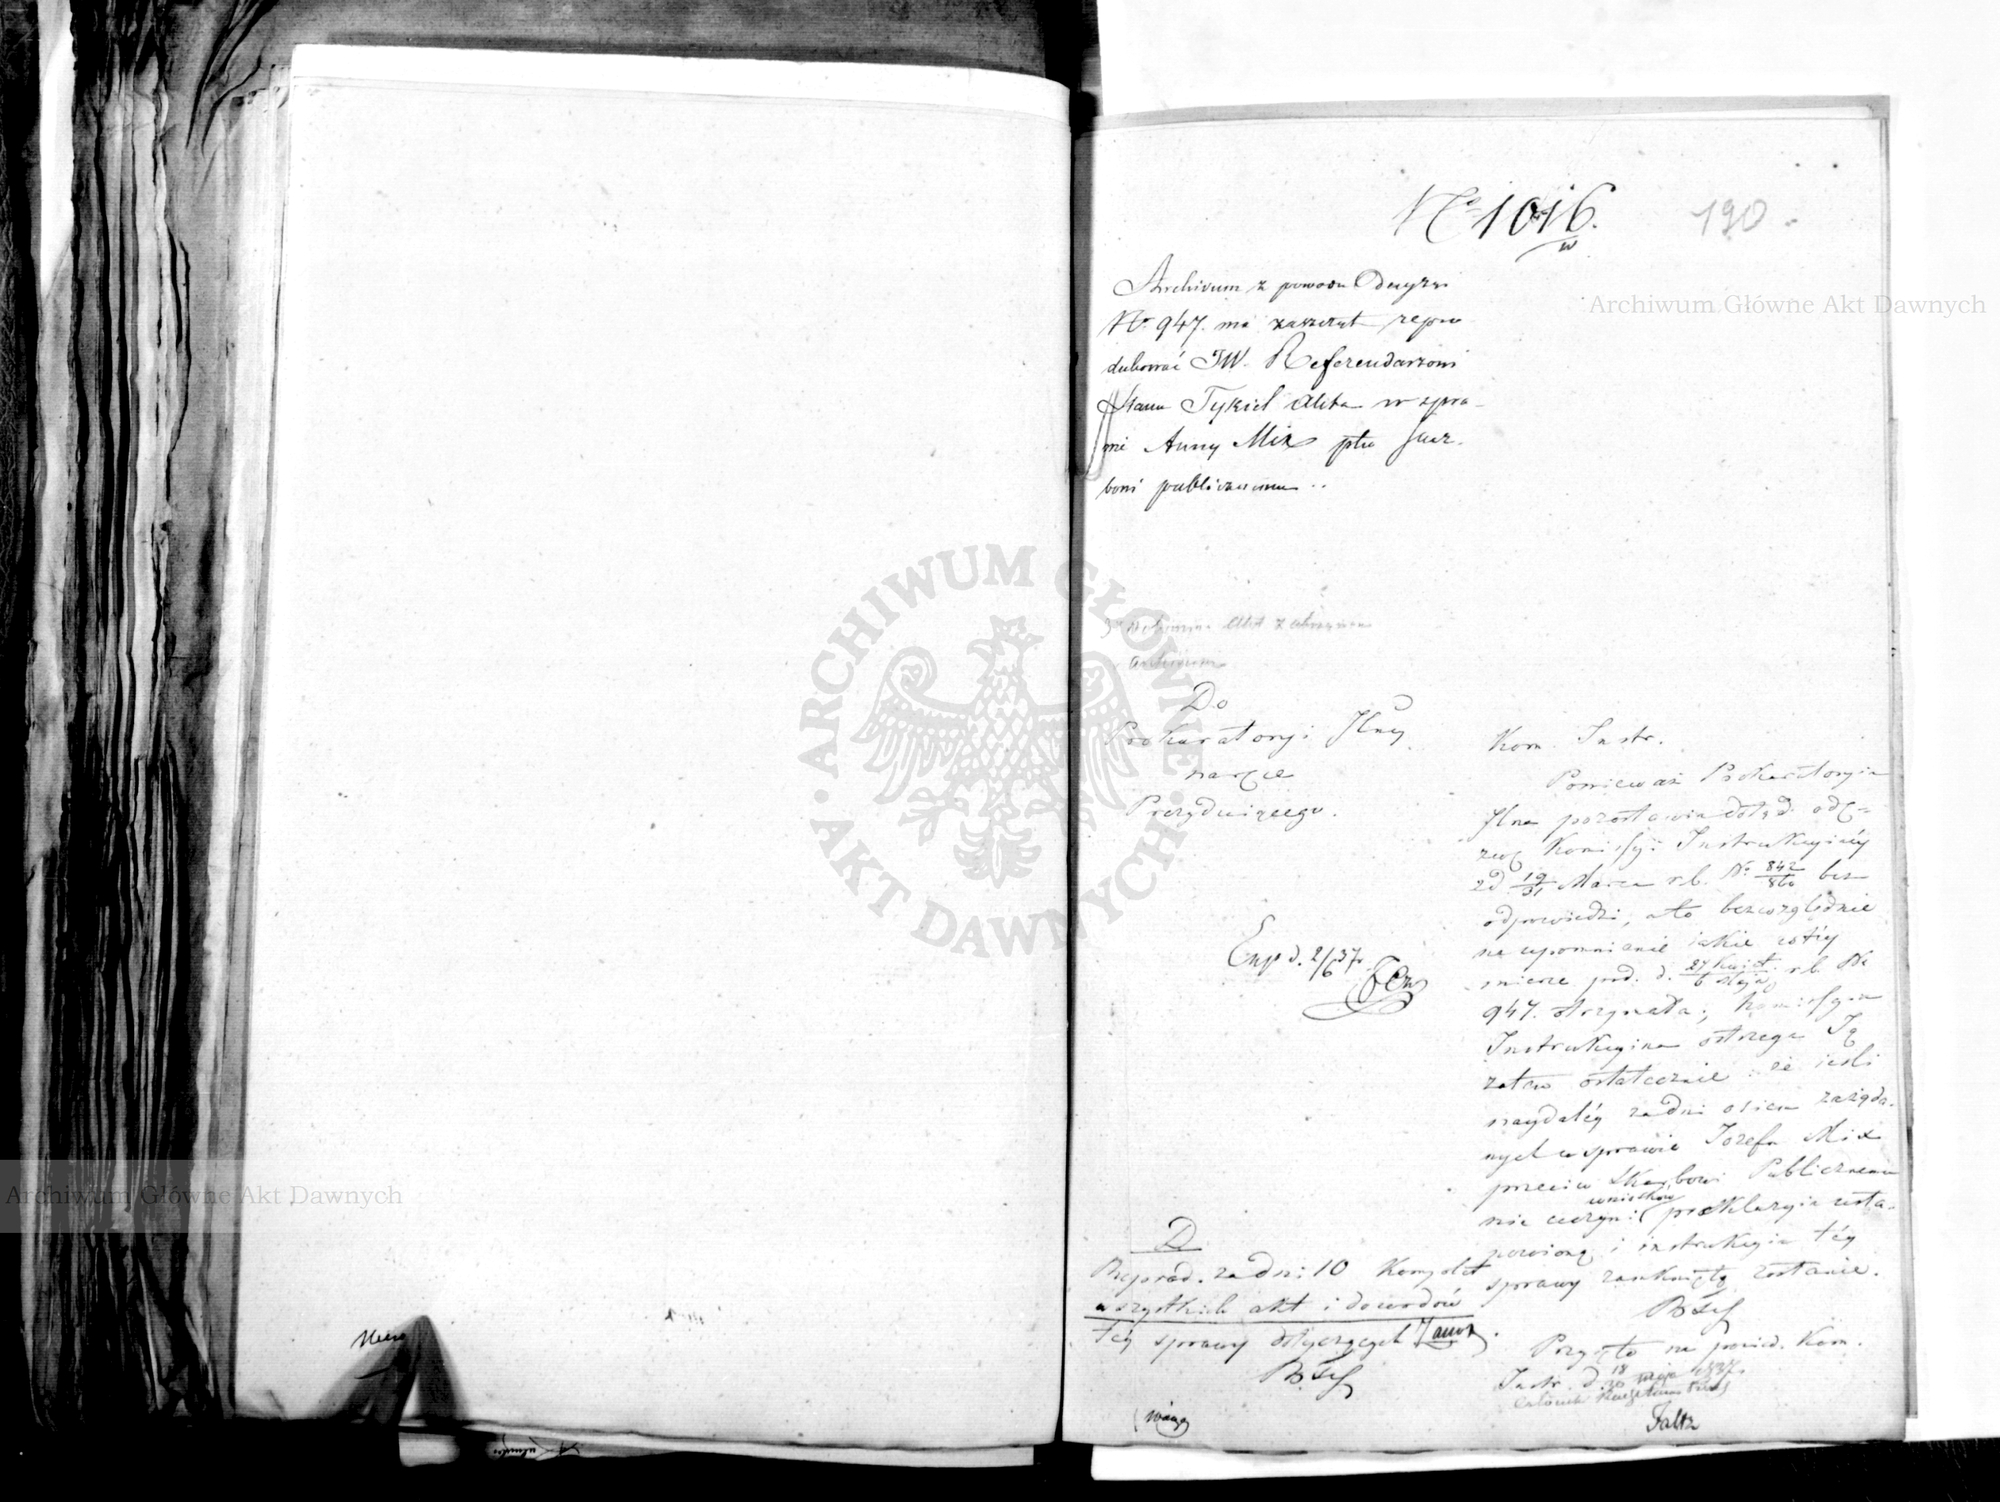 No 1016.
190
Archivum z powodu Decyzyi
No. 947. ma zaszczyt repro
dukować JW. Referendarzowi
Stanu Tykiel Akta w spra-
wie Anny Mix ptko Skar-
bowi publicznemu ..
Akt
Archivum
Do
Prokuratoryi Jlney
na ręce
Prezyduiącego.
Exp d. 2/6 37
Kom. Instr.
Ponieważ Prokuratorya
Jlna pozostawia dotąd ode-
zwę Komissyi Instrukcyinéy
zd 19/31 Marca r.b. No. 842/860 bez
odpowiedzi, a to bezwzględnie
na upomnienie iakie w téy
mierze pod d. 27 Kwiet./6 Maja r.b. No
947. otrzymała; Komissyia
Instrukcyina ostrzega Ją
zatem ostatecznie: że ieśli
naydaléy za dni osiem zażąda-
nych w sprawie Jozefa Mix
przeciw Skarbowi Publicznemu
nie uczyni wniosków, prekluzyia usta-
nowioną i instrukcyia téy
sprawy zamkniętą zostanie.
Przyięto na posied. Kom.
Instr. d. 18/30 maja 1837.
Faltz
D
Repród. za dni 10 Komplet
wszystkich akt i dowodów
téy sprawy dotyczących
Archiwum Główne Akt Dawnych
Archiwum Główne Akt Dawnych
ARCHIWUM GŁÓWNE AKT DAWNYCH